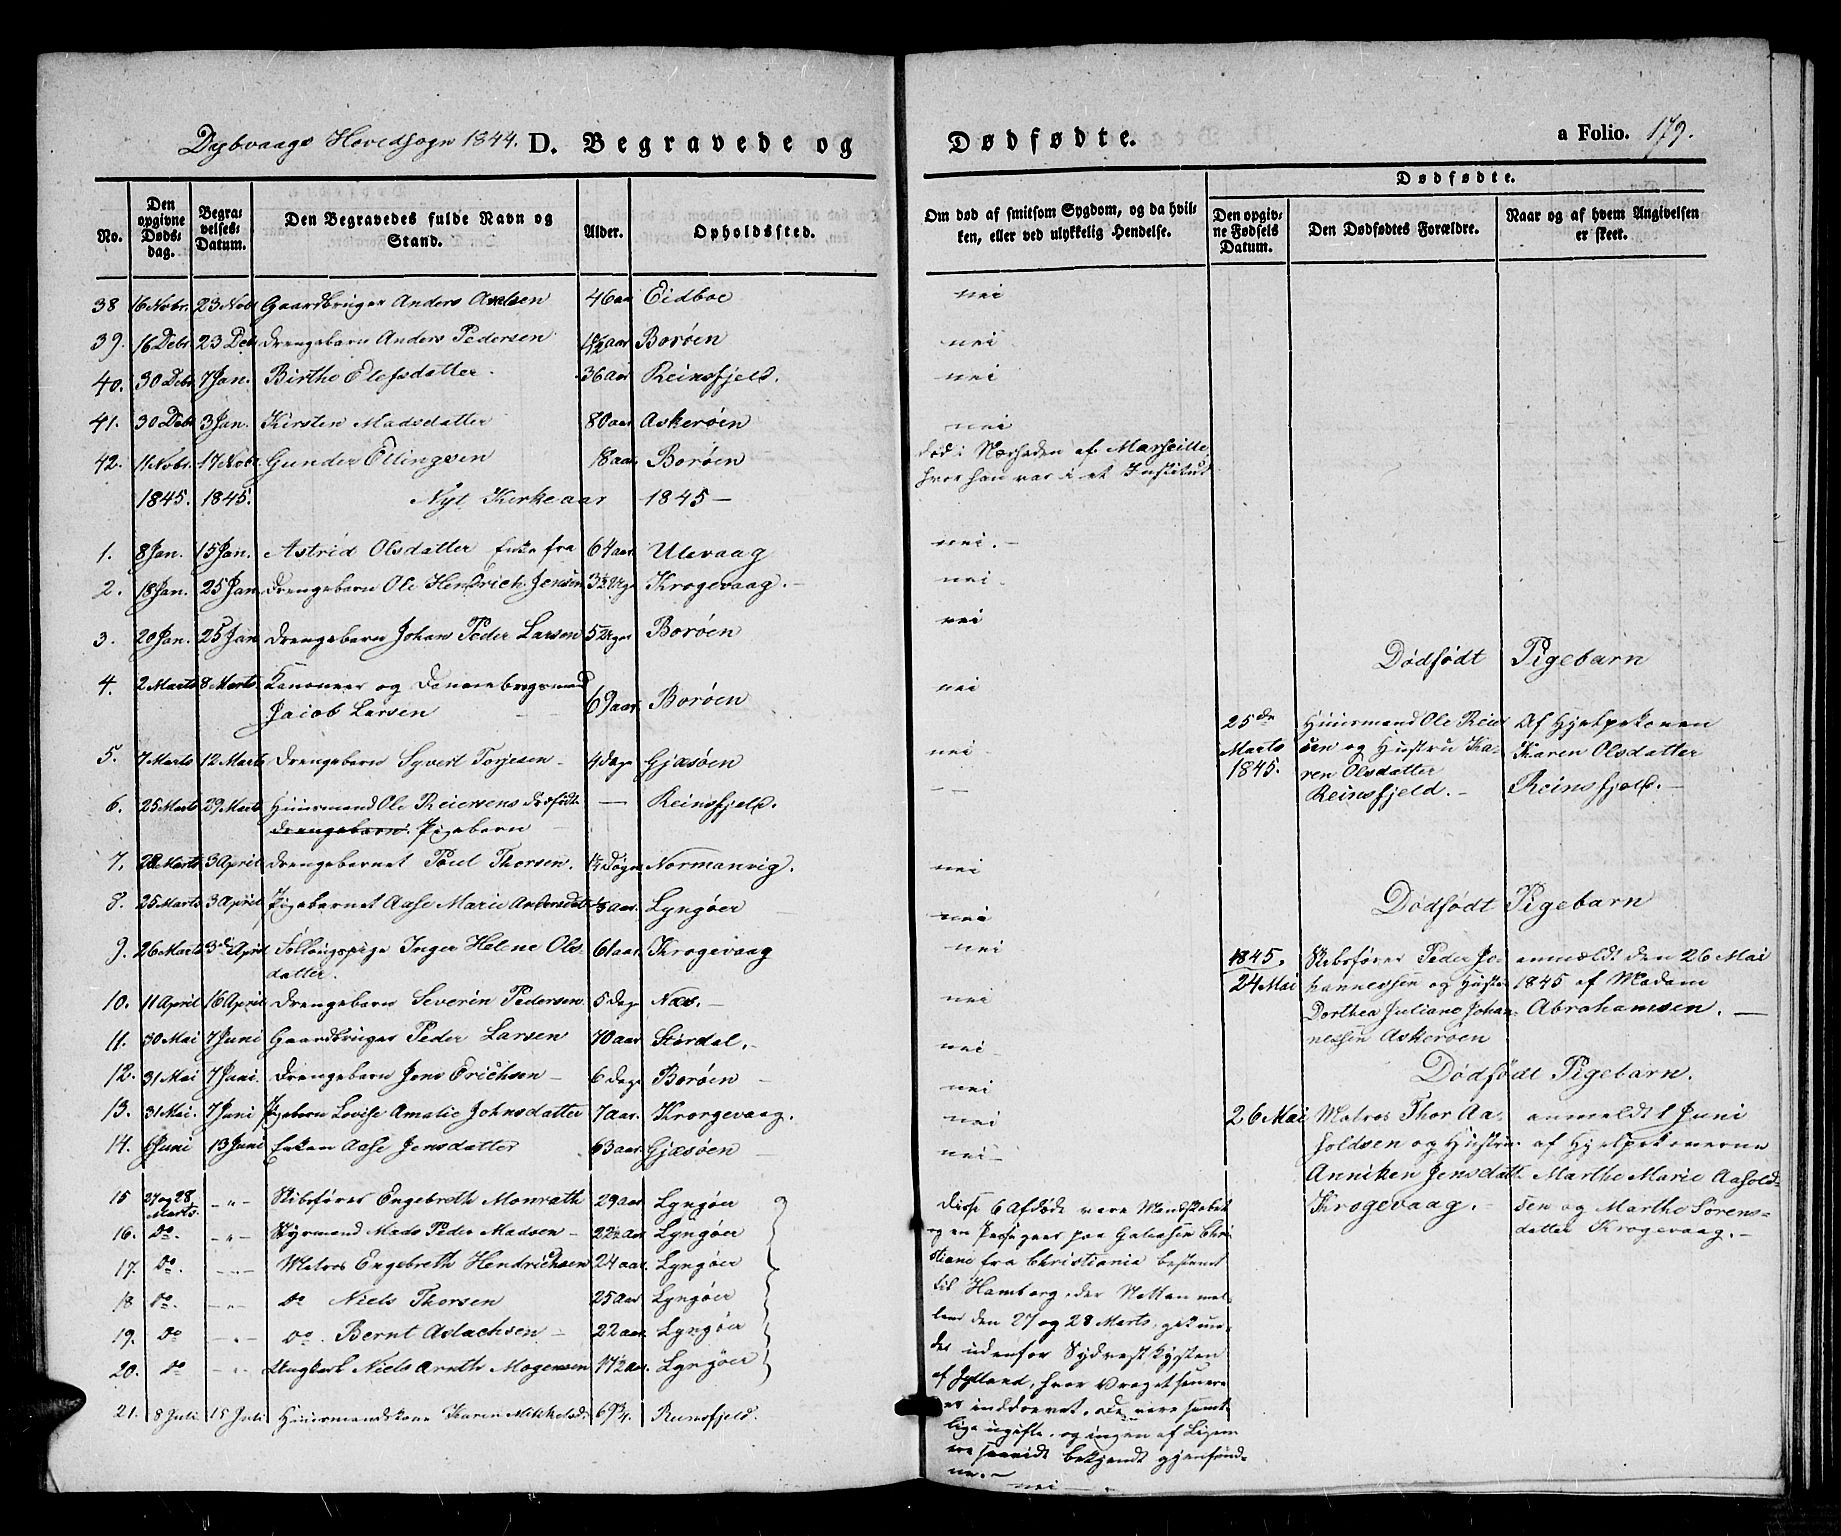 Dybvaags Hovedsogn 1844. D. Begravede og Dødfødte. a Folio. 179.
No. Den opgivne Dødsdag. Begravelses-Datum. Den Begravedes fulde Navn og Stand. Alder. Opholdssted. Om død af smitsom Sygdom, og da hvilken, eller ved ulykkelig Hendelse. Dødfødte. Den opgivne Fødsels Datum. Den Dødfødtes Forældre. Naar og af hvem Angivelsen er skeet.
38 16 Nobr. 23 Nobr Gaardbruger Anders Axelsen 46 aar Eidboe nei
39. 16 Debr. 23 Deb Drengebarn Anders Pedersen aar Borøen nei
40. 30 Debr 7 Jan. Birthe Olefsdatter. 36 aar Reinsfjeld. nei
41. 30 Debr 3 Jan. Kirsten Madsdatter 80 aar Askerøen nei
42. 11 Nobr. 17 Nobr Gunder Ellingsen 18 aar Borøen død i Nærheden af Marseille,
hvor han var i et Institut
1845. 1845. Nyt Kirkeaar 1845 —
1. 8 Jan. 15 Jan. Astrid Olsdatter Enke fra 64 aar Ulevaag nei. -
2. 18 Jan. 25 Jan Drengebarn Ole Hendrich Jensen 3½ Uge Krogevaag. - nei
3. 20 Jan. 25 Jan Drengebarn Johan Peder Larsen 5 Uger Borøen nei
Dødfødt Pigebarn
4. 2 Marts 8 Marts. Kanoneer og Dannebrogsmand
Jacob Larsen 69 aar. Borøen nei
25de Marts 1845. Huusmand Ole Reiersen og Hustru Karen Olsdatter Reinsfjeld. - Af Hjelpekonen Karen Olsdatter Reinsfjeld. -
5. 7 Marts 12 Marts Drengebarn Syvert Torjesen - 4 dage Gjæsøen nei
6. 25 Marts 29 Marts Huusmand Ole Reiersens dødfødt
Drengebarn. Pigebarn — Reinsfjeld. - -
7. 28 Marts 3 April Drengebarnet Poul Thorsen. Døgn Normanvig. nei
8. 25 Marts 3 April Pigebarnet Aase Marie Andersdatt aar. Lyngøer nei
Dødfødt Pigebarn
9. 26 Marts 3de April Fattigpige Inger Helene Ols-
datter. 61 aar Krogevaag nei
1845. 24 Mai Skibsfører Peder Johannessen og Hustru Dorthea Juliane Johannessen Askerøen anmeldt den 26 Mai 1845 af Madam Abrahamsen. —
10. 11 April 16 April Drengebarn Severin Pedersen 5 dage Næs. - nei
11. 30 Mai 7 Juni Gaardbruger Peder Larsen 70 aar Stordal. - nei
12. 31 Mai 7 Juni. Drengebarn Jens Erichsen - 6 dage Borøen - nei
Dødfødt Pigebarn.
13. 31 Mai. 7 Juni Pigebarn Lovise Amalie Johnsdatter 7 aar. Krogevaag. nei
26 Mai Matros Thor Aanoldsen og Hustru Anniken Jensdatt Krogevaag. - anmeldt 1 Juni af Hjelpekonerne Marthe Marie Aanoldsen og Marthe Sørensdatter Krogevaag. -
14. 6 Juni 13 Juni Enken Aase Jensdatter 63 aar Gjæsøen nei -
15 27 og 28 Marts. - " - Skibsfører Engebreth Monrath 29 aar Lyngøer
16. Do. - " - Styrmand Mads Peder Madsen - 22½ aar Lyngøer
17. Do. - " - Matros Engebreth Hendrichsen 24 aar. Lyngøer
18 Do. - " - Do Niels Thorsen 25 aar Lyngøer
19. Do - " - Do. Bernt Aslachsen - 22 aar. Lyngøer
20. Do - " - Ungkarl Niels Arnth Mogensen 17½ aar. Lyngøer
Disse 6 Afdøde vare Mandskabet
og en Passageer paa Galeasen Chri-
stiane fra Christiania bestemt
til Hamborg, der Natten mel-
lem den 27 og 28 Marts, gik un-
der udenfor Sydvestkysten
af Jylland, hvor Vraget senere
er inddrevet. De vare samt-
lige ugifte, og ingen af Ligene
ere saavidt bekjendt gjenfund-
ne. -
21. 8 Juli 15 Juli Huusmandskone Karen Mikkelsd. 69¾. Reinsfjeld. nei - .